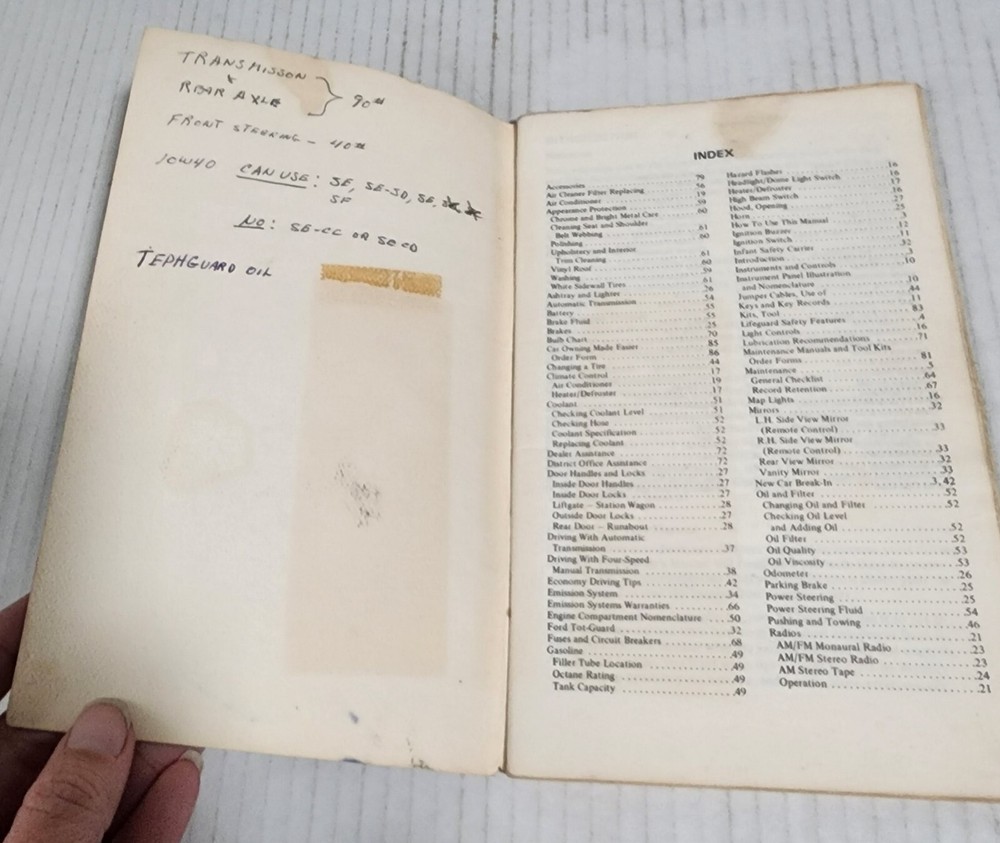 TRANSMISSON
&
REAR AXLE } 90#
FRONT STEERING - 40#
10W40 CAN USE: SE, SE-SD, SE,
SF
NO: SE-CC OR SE CD
TEPHGUARD OIL
INDEX
Accessories 79
Air Cleaner Filter Replacing 56
Air Conditioner 19
Appearance Protection 59
Chrome and Bright Metal Care 60
Cleaning Seat and Shoulder
Belt Webbing 61
Polishing 60
Upholstery and Interior
Trim Cleaning 61
Vinyl Roof 60
Washing 59
White Sidewall Tires 61
Ashtray and Lighter 26
Automatic Transmission 54
Battery 55
Brake Fluid 55
Brakes 25
Bulb Chart 70
Car Owning Made Easier 85
Order Form 86
Changing a Tire 44
Climate Control 17
Air Conditioner 19
Heater/Defroster 17
Coolant 51
Checking Coolant Level 51
Checking Hose 52
Coolant Specification 52
Replacing Coolant 52
Dealer Assistance 72
District Office Assistance 72
Door Handles and Locks 27
Inside Door Handles 27
Inside Door Locks 27
Liftgate – Station Wagon 28
Outside Door Locks 27
Rear Door – Runabout 28
Driving With Automatic
Transmission 37
Driving With Four-Speed
Manual Transmission 38
Economy Driving Tips 42
Emission System 34
Emission Systems Warranties 66
Engine Compartment Nomenclature 50
Ford Tot-Guard 32
Fuses and Circuit Breakers 68
Gasoline 49
Filler Tube Location 49
Octane Rating 49
Tank Capacity 49
Hazard Flasher 16
Headlight/Dome Light Switch 16
Heater/Defroster 17
High Beam Switch 16
Hood, Opening 27
Horn 25
How To Use This Manual 3
Ignition Buzzer 12
Ignition Switch 11
Infant Safety Carrier 32
Introduction 3
Instruments and Controls 10
Instrument Panel Illustration
and Nomenclature 10
Jumper Cables, Use of 44
Keys and Key Records 11
Kits, Tool 83
Lifeguard Safety Features 4
Light Controls 16
Lubrication Recommendations 71
Maintenance Manuals and Tool Kits
Order Forms 81
Maintenance 5
General Checklist 64
Record Retention 67
Map Lights 16
Mirrors 32
L.H. Side View Mirror
(Remote Control) 33
R.H. Side View Mirror
(Remote Control) 33
Rear View Mirror 32
Vanity Mirror 33
New Car Break-In 3, 42
Oil and Filter 52
Changing Oil and Filter 52
Checking Oil Level
and Adding Oil 52
Oil Filter 52
Oil Quality 53
Oil Viscosity 53
Odometer 26
Parking Brake 25
Power Steering 25
Power Steering Fluid 54
Pushing and Towing 46
Radios 21
AM/FM Monaural Radio 23
AM/FM Stereo Radio 23
AM Stereo Tape 24
Operation 21